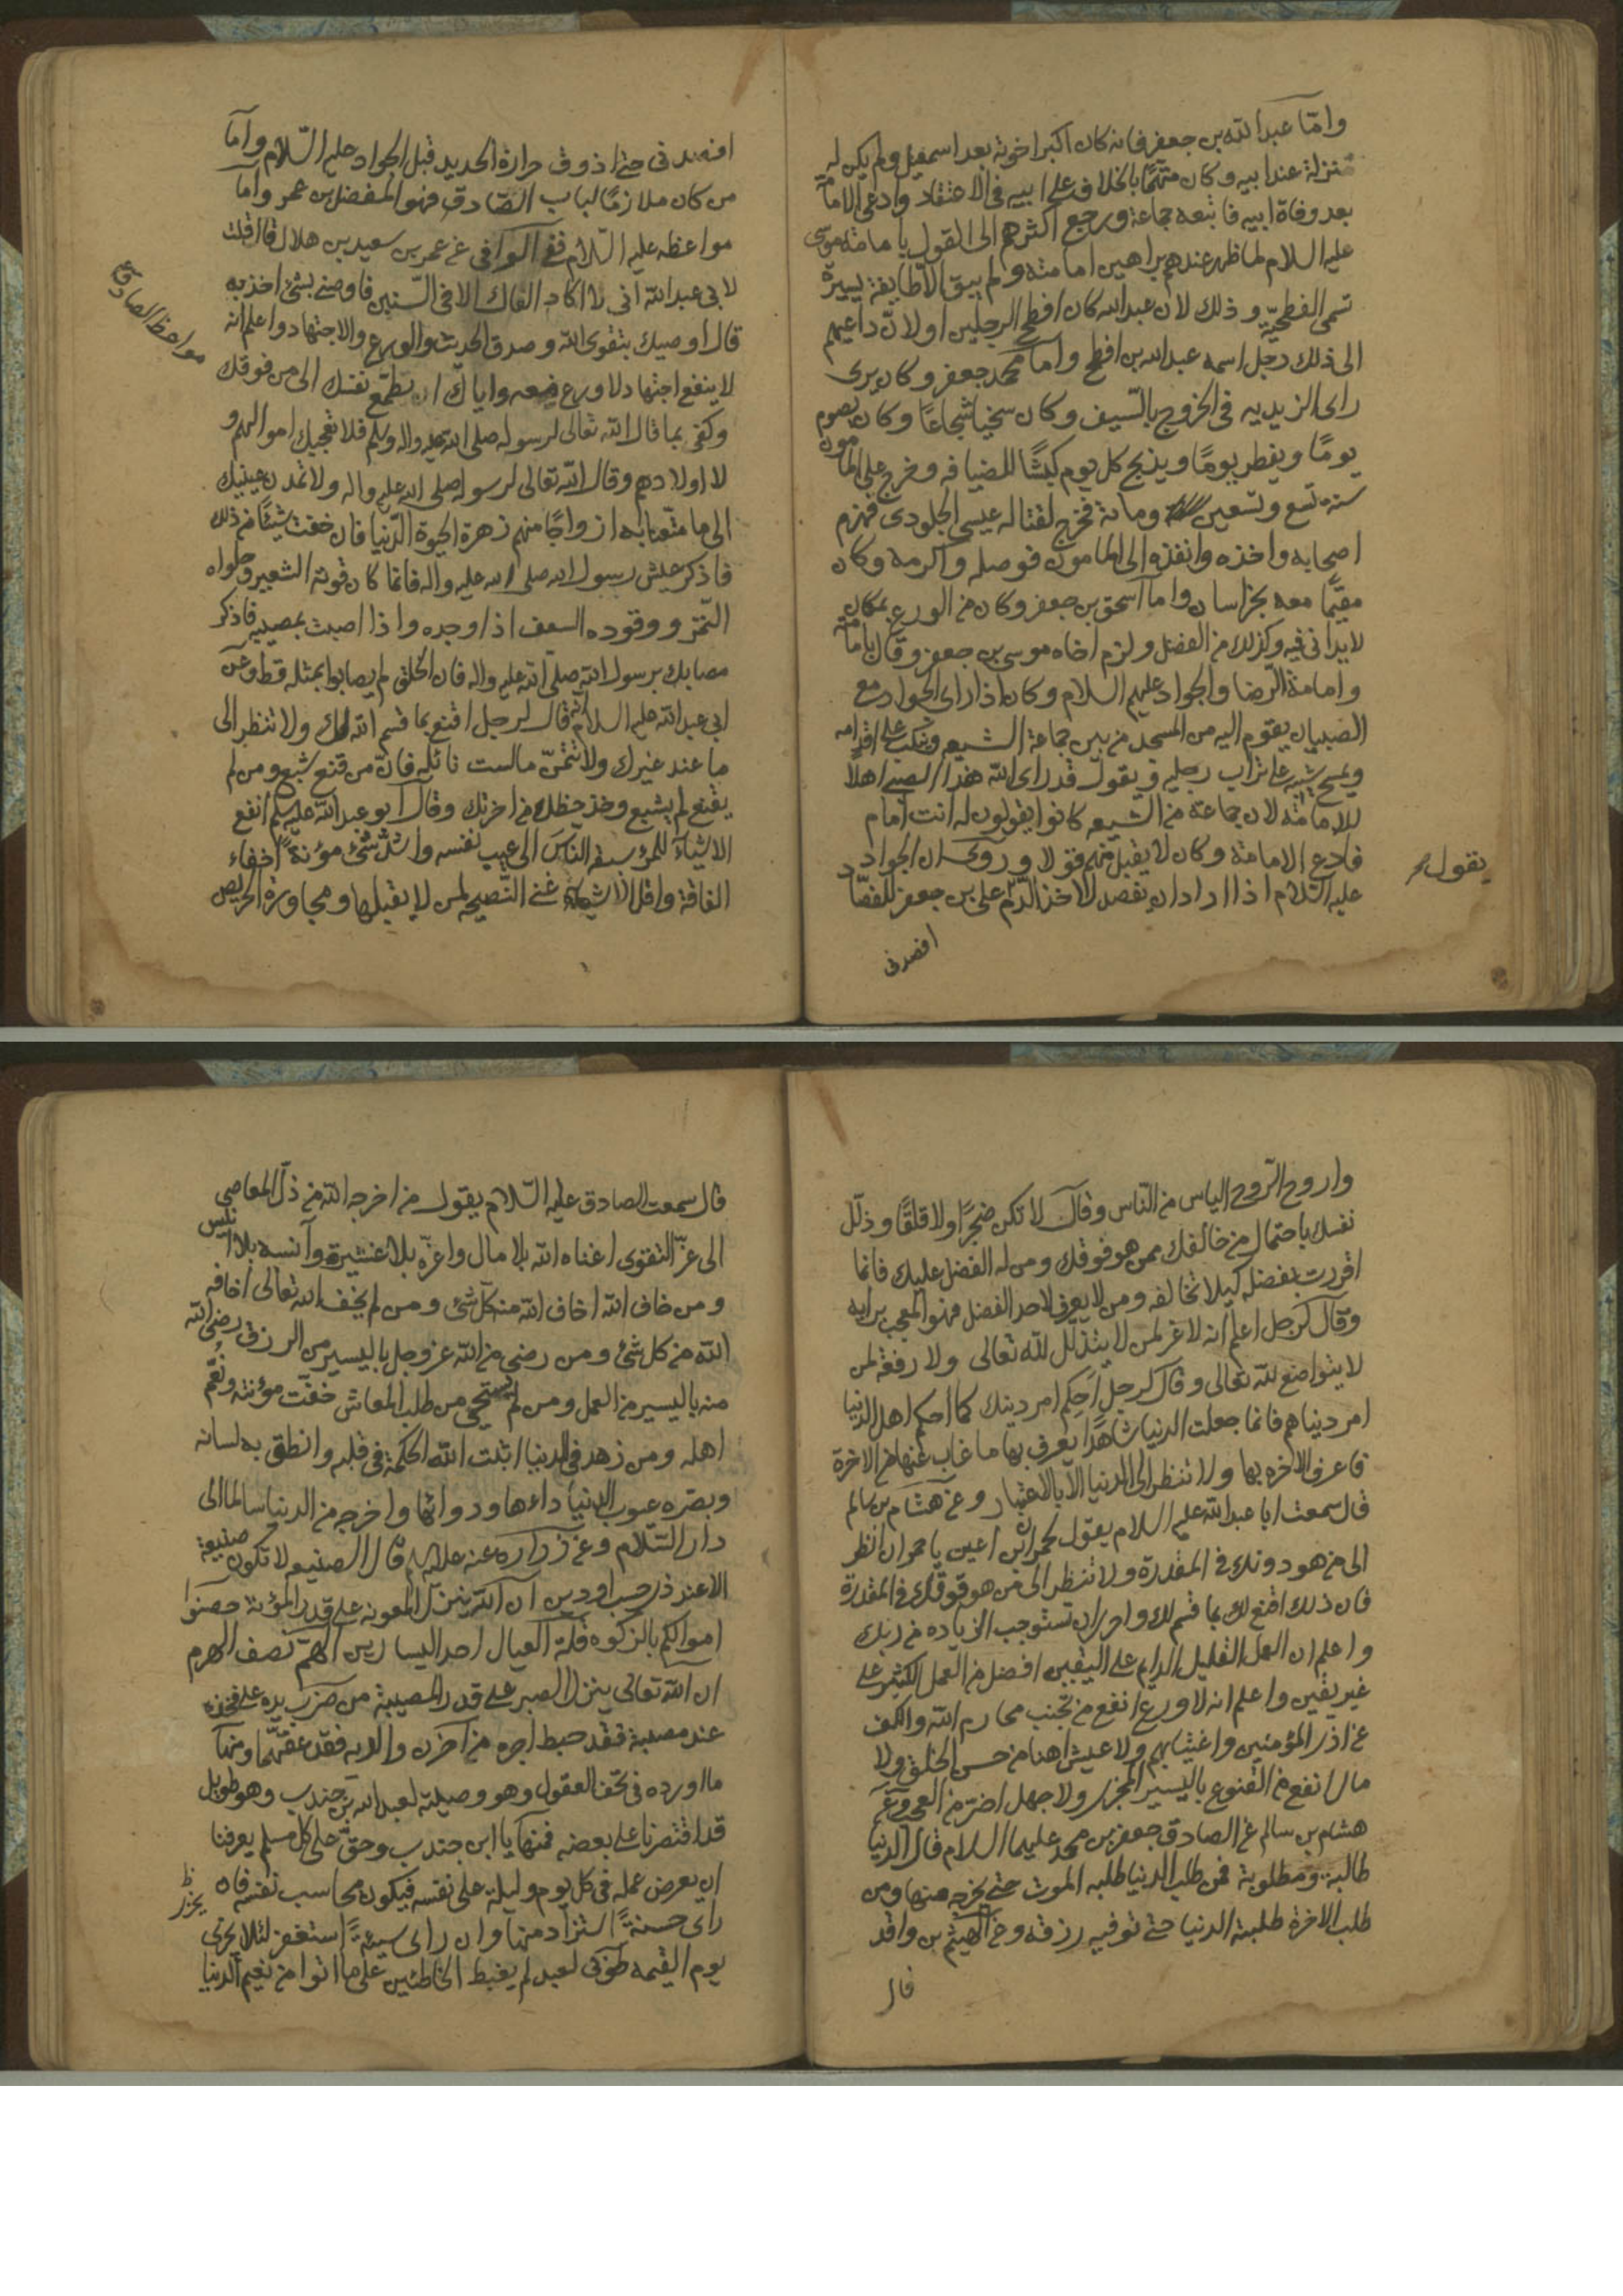 واما عبد الله بن جعفر فانه كان اكبر اخوته بعد اسمعيل ولم يكن له
منزلة عند ابيه وكان متهمًا بالخلاف على ابيه في الاعتقاد وادعى الامامة
بعد وفاة ابيه فاتبعه جماعة ورجع اكثرهم الى القول بامامة موسى
عليه السلام لما ظهر عندهم براهين امامته ولم يبق الا طايفة يسيرة
تسمى الفطحيّة وذلك لان عبد الله كان افطح الرجلين او لان داعيهم
الى ذلك رجل اسمه عبد الله بن افطح واما محمد جعفر وكان يرى
راى الزيديه فى الخروج بالسيف وكان سخيا شجاعًا وكان يصوم
يومًا ويفطر يومًا ويذبح كل يوم كبشًا للضيافه وخرج على المامون
سنه تسع وتسعين ومائة فخرج لقتاله عيسى الجلودى فهزم
اصحابه واخذه وانفذه الى المامون فوصله واكرمه وكان
مقيمًا معه بخراسان واما اسحق بن جعفر وكان من الورع بمكان
لا يدانى فيه وكذلك من الفضل ولزم اخاه موسى بن جعفر وقال بامامته
وامامة الرضا والجواد عليهم السلام وكان اذا راى الجواد مع
الصبيان يقوم اليه من المسجد من بين جماعة الشيعه وينكب على اقدامه
ويمسح شيبه على تراب رجليه ويقول قد راى الله هذا الصبى اهلًا
للامامة لان جماعة من الشيعه كانوا يقولون له انت امام
فادع الامامة وكان لا يقبل منهم قولا وروى ان الجواد
عليه السّلام اذا اراد ان يفصد لاخذ الدّم على بن جعفر للفصّاد
يقول
افصدنى
افصدنى حتى اذوق حرارة الحديد قبل الجواد عليه السّلام واما
من كان ملازمًا لباب الصّادق فهو المفضل بن عمر واما
مواعظه عليه السّلام ففى الوافى عن عمر بن سعيد بن هلال قال قلت
لابى عبد الله انى لا اكاد القاك الا فى السّنين فاوصنى بشئ اخذ به
قال اوصيك بتقوى الله وصدق الحديث والورع والاجتهاد واعلم انه
لا ينفع اجتهاد لا ورع معه واياك ان تطمح نفسك الى من فوقك
وكفى بما قال الله تعالى لرسوله صلى الله عليه واله وسلم فلا تعجبك اموالهم و
لا اولادهم وقال الله تعالى لرسوله صلى الله عليه واله ولا تمدن عينيك
الى ما متّعنا به ازواجًا منهم زهرة الحيوة الدّنيا فان خفت شيئًا من ذلك
فاذكر عيش رسول الله صلى الله عليه واله فانما كان قوته الشعير وحلواه
التّمر ووقوده السعف اذا وجده واذا اصبت بمصيبة فاذكر
مصابك برسول الله صلّى الله عليه واله فان الخلق لم يصابوا بمثله قط وعن
ابى عبد الله عليه السلام انه قال لرجل اقنع بما قسم الله لك ولا تنظر الى
ما عند غيرك ولا تتمنّ ما لست نائله فانّ من قنع شبع ومن لم
يقنع لم يشبع وخذ حظك من اخرتك وقال ابو عبد الله عليه سلم انفع
الاشيآء للمرء سبقه النّاس الى عيب نفسه واشدّ شئ مؤنةً اخفاء
الفاقة واقل الاشياء غنى النّصيحة لمن لا يقبلها ومجاورة الحريص
مواعظ الصادق ع
واروح الرّوح الياس من النّاس وقال لا تكن ضجرًا ولا قلقًا وذلّل
نفسك باحتمال من خالفك ممن هو فوقك ومن له الفضل عليك فانما
اقررت بفضله كيلا تخالفه ومن لا يعرف لاحد الفضل فهو المعجب برايه
وقال لرجل اعلم انه لا عز لمن لا يتذلل لله تعالى ولا رفعة لمن
لا يتواضع لله تعالى وقال لرجل احكم امر دينك كما احكم اهل الدنيا
امر دنياهم فانما جعلت الدنيا شاهدًا يعرف بها ما غاب عنها من الاخرة
فاعرف الاخره بها ولا تنظر الى الدنيا الّا بالاعتبار وعن هشام بن سالم
قال سمعت ابا عبد الله عليه السلام يقول لحمران بن اعين يا حمران انظر
الى من هو دونك فى المقدرة ولا تنظر الى من هو فوقك فى المقدرة
فان ذلك اقنع لك بما قسم لك واحرى ان تستوجب الزياده من ربك
واعلم ان العمل القليل الدايم على اليقين افضل من العمل الكثير على
غير يقين واعلم انه لا ورع انفع من تجنب محارم الله والكف
عن اذى المؤمنين واغتيابهم ولا عيش اهنا من حسن الخلق ولا
مال انفع من القنوع باليسير المجزى ولا جهل اضر من العجب وعن
هشام بن سالم عن الصادق جعفر بن محمد عليهما السلام قال الدنيا
طالبة ومطلوبة فمن طلب الدنيا طلبه الموت حتى يخرجه منها ومن
طلب الاخرة طلبته الدنيا حتى توفيه رزقه وعن الهيثم بن واقد
قال
قال سمعت الصادق عليه السّلام يقول من اخرجه الله من ذلّ المعاصى
الى عزّ التقوى اغناه الله بلا مال واعزّه بلا عشيرة وآنسه بلا انيس
ومن خاف الله اخاف الله منه كل شئ ومن لم يخف الله تعالى اخافه
الله من كل شئ ومن رضى من الله عز وجل باليسير من الرزق رضى الله
منه باليسير من العمل ومن لم يستحى من طلب المعاش خفّت مؤنته ونعّم
اهله ومن زهد فى الدنيا اثبت الله الحكمة فى قلبه وانطق به لسانه
وبصّره عيوب الدنيا داءها ودوائها واخرجه من الدنيا سالما الى
دار السّلام وعن زراره عنه علاله قال الصنيعه لا تكون صنيعة
الا عند ذى حسب او دين ان الله ينزل المعونه على قدر المؤنة حصنوا
اموالكم بالزكوه قلة العيال احد اليسارين الهمّ نصف الهرم
ان الله تعالى ينزل الصبر على قدر المصيبة من ضرب يده على فخذه
عند مصيبة فقد حبط اجره من احزن والديه فقد عقهما ومنها
ما اورده فى تحف العقول وهو وصيته لعبد الله بن جندب وهو طويل
قد اقتصرنا على بعضه فمنها يا ابن جندب وحقّ على كل مسلم يعرفنا
ان يعرض عمله فى كل يوم وليلة على نفسه فيكون محاسب نفسه فان
راى حسنةً استزاد منها وان راى سيئةً استغفر لئلا يخزى
يوم القيمه طوبى لعبد لم يغبط الخاطئين على ما اتوا من نعيم الدنيا